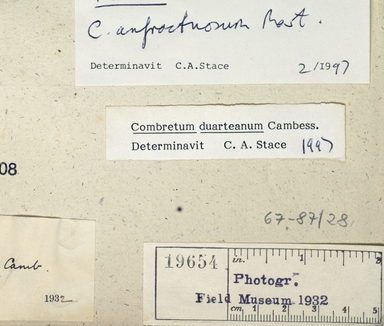 C. anfractuosum Mart.
Determinavit C.A. Stace 2/1997
Combretum duarteanum Cambess.
Determinavit C. A. Stace 1997
08
67-87/28.
Camb.
1932
19654
in. 1 2
Photogr.
Field Museum 1932
cm. 1 2 3 4 5